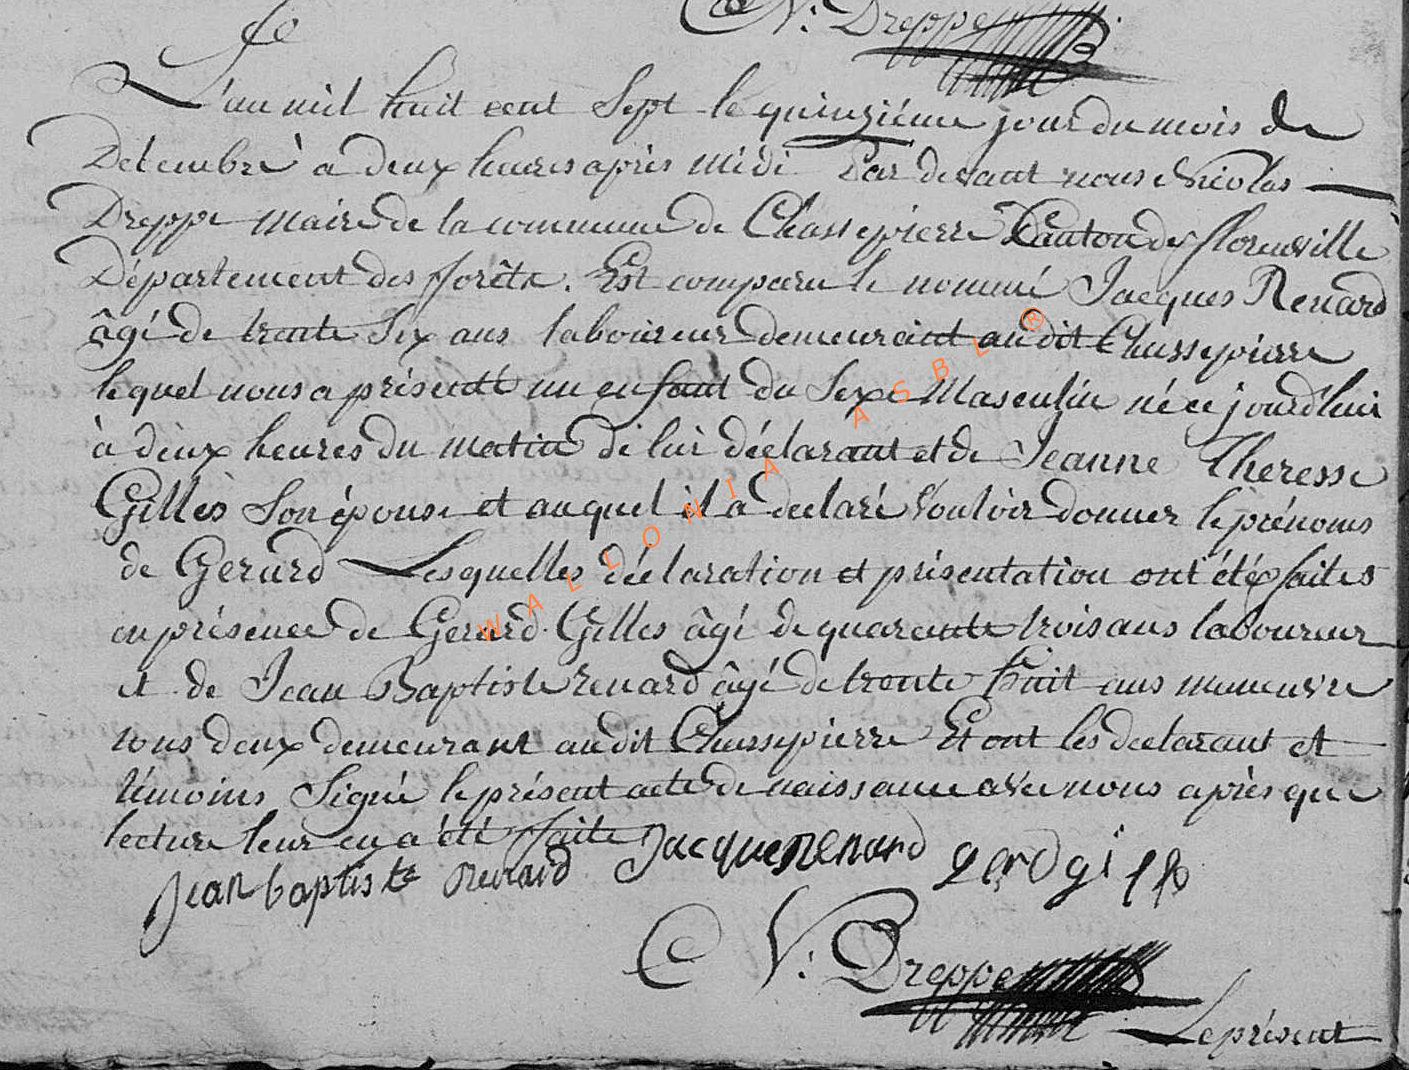 N: Dreppe
L'an mil huit cent Sept le quinziéme jour du mois de
Décembre à deux heures après midi Par devant nous Nicolas
Dreppe Maire de la commune de Chassepierre Canton de florenville
Département des forêts. Est comparu le nommé Jacques Renard
âgé de trente Six ans laboureur demeurant audit Chassepierre
lequel nous a présenté un enfant du Sexe Masculin né ce jourd'hui
à deux heures du matin de lui déclarant et de Jeanne Theresse
Gilles Son épouse et auquel il a declaré vouloir donner le prénoms
de Gerard Lesquelles déclaration et présentation ont été faites
en présence de Gerard Gilles âgé de quarente trois ans laboureur
et de Jean Baptiste renard âgé de trente huit ans manœuvre
tous deux demeurant audit Chassepierre Et ont les declarant et
témoins Signé le présent acte de naissance avec nous après que
lecture leur en a été faite Jacque Renard gerd gills
Jean baptiste renard
N: Dreppe
Le présent
WALLONIA ASBL ®